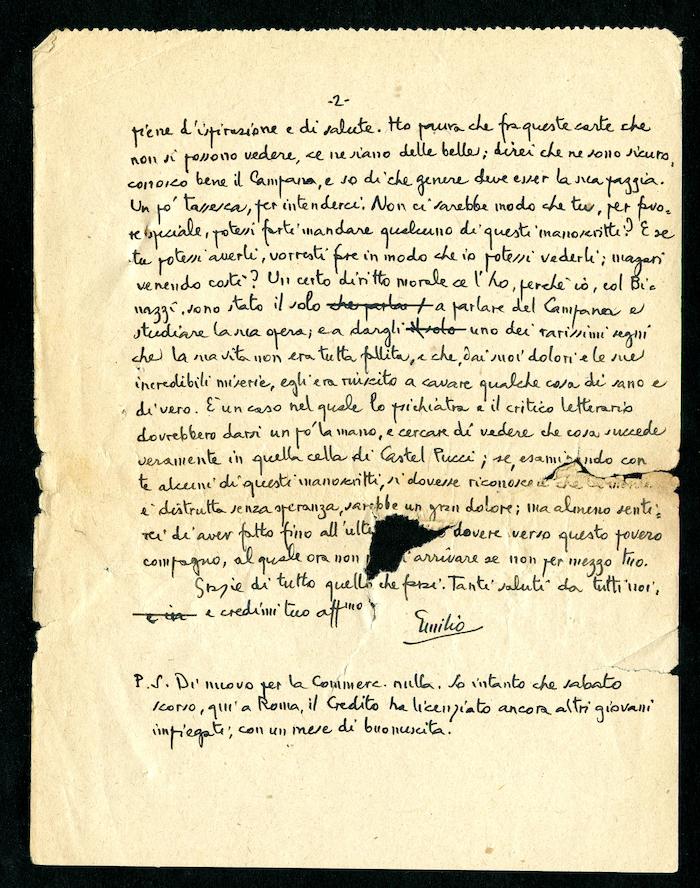 -2-
piene d'ispirazione e di salute. Ho paura che fra queste carte che
non si possono vedere, ce ne siano delle belle; direi che ne sono sicuro,
conosco bene il Campana, e so di che genere deve esser la sua pazzia.
Un po' tassesca, per intenderci. Non ci sarebbe modo che tu, per favo-
re speciale, potessi farti mandare qualcuno di questi manoscritti? E se
tu potessi averli, vorresti fare in modo che io potessi vederli; magari
venendo costì? Un certo diritto morale ce l'ho, perchè io, col Bi-
nazzi, sono stato il solo che parlas a parlare del Campana e
studiare la sua opera; e a dargli il solo uno dei rarissimi segni
che la sua vita non era tutta fallita, e che, dai suoi dolori e le sue
incredibili miserie, egli era riuscito a cavare qualche cosa di sano e
di vero. È un caso nel quale lo psichiatra e il critico letterario
dovrebbero darsi un po' la mano, e cercare di vedere che cosa succede
veramente in quella cella di Castel Pucci; se, esaminando con
te alcuni di questi manoscritti, si dovesse riconoscere che
è distrutta senza speranza, sarebbe un gran dolore; ma almeno senti-
rei di aver fatto fino all'ulti dovere verso questo povero
compagno, al quale ora non arrivare se non per mezzo tuo.
Grazie di tutto quello che farai. Tanti saluti da tutti noi,
e credimi tuo affmo
Emilio
P.S. Di nuovo per la Commerc. nulla. So intanto che sabato
scorso, qui a Roma, il Credito ha licenziato ancora altri giovani
impiegati; con un mese di buonuscita.